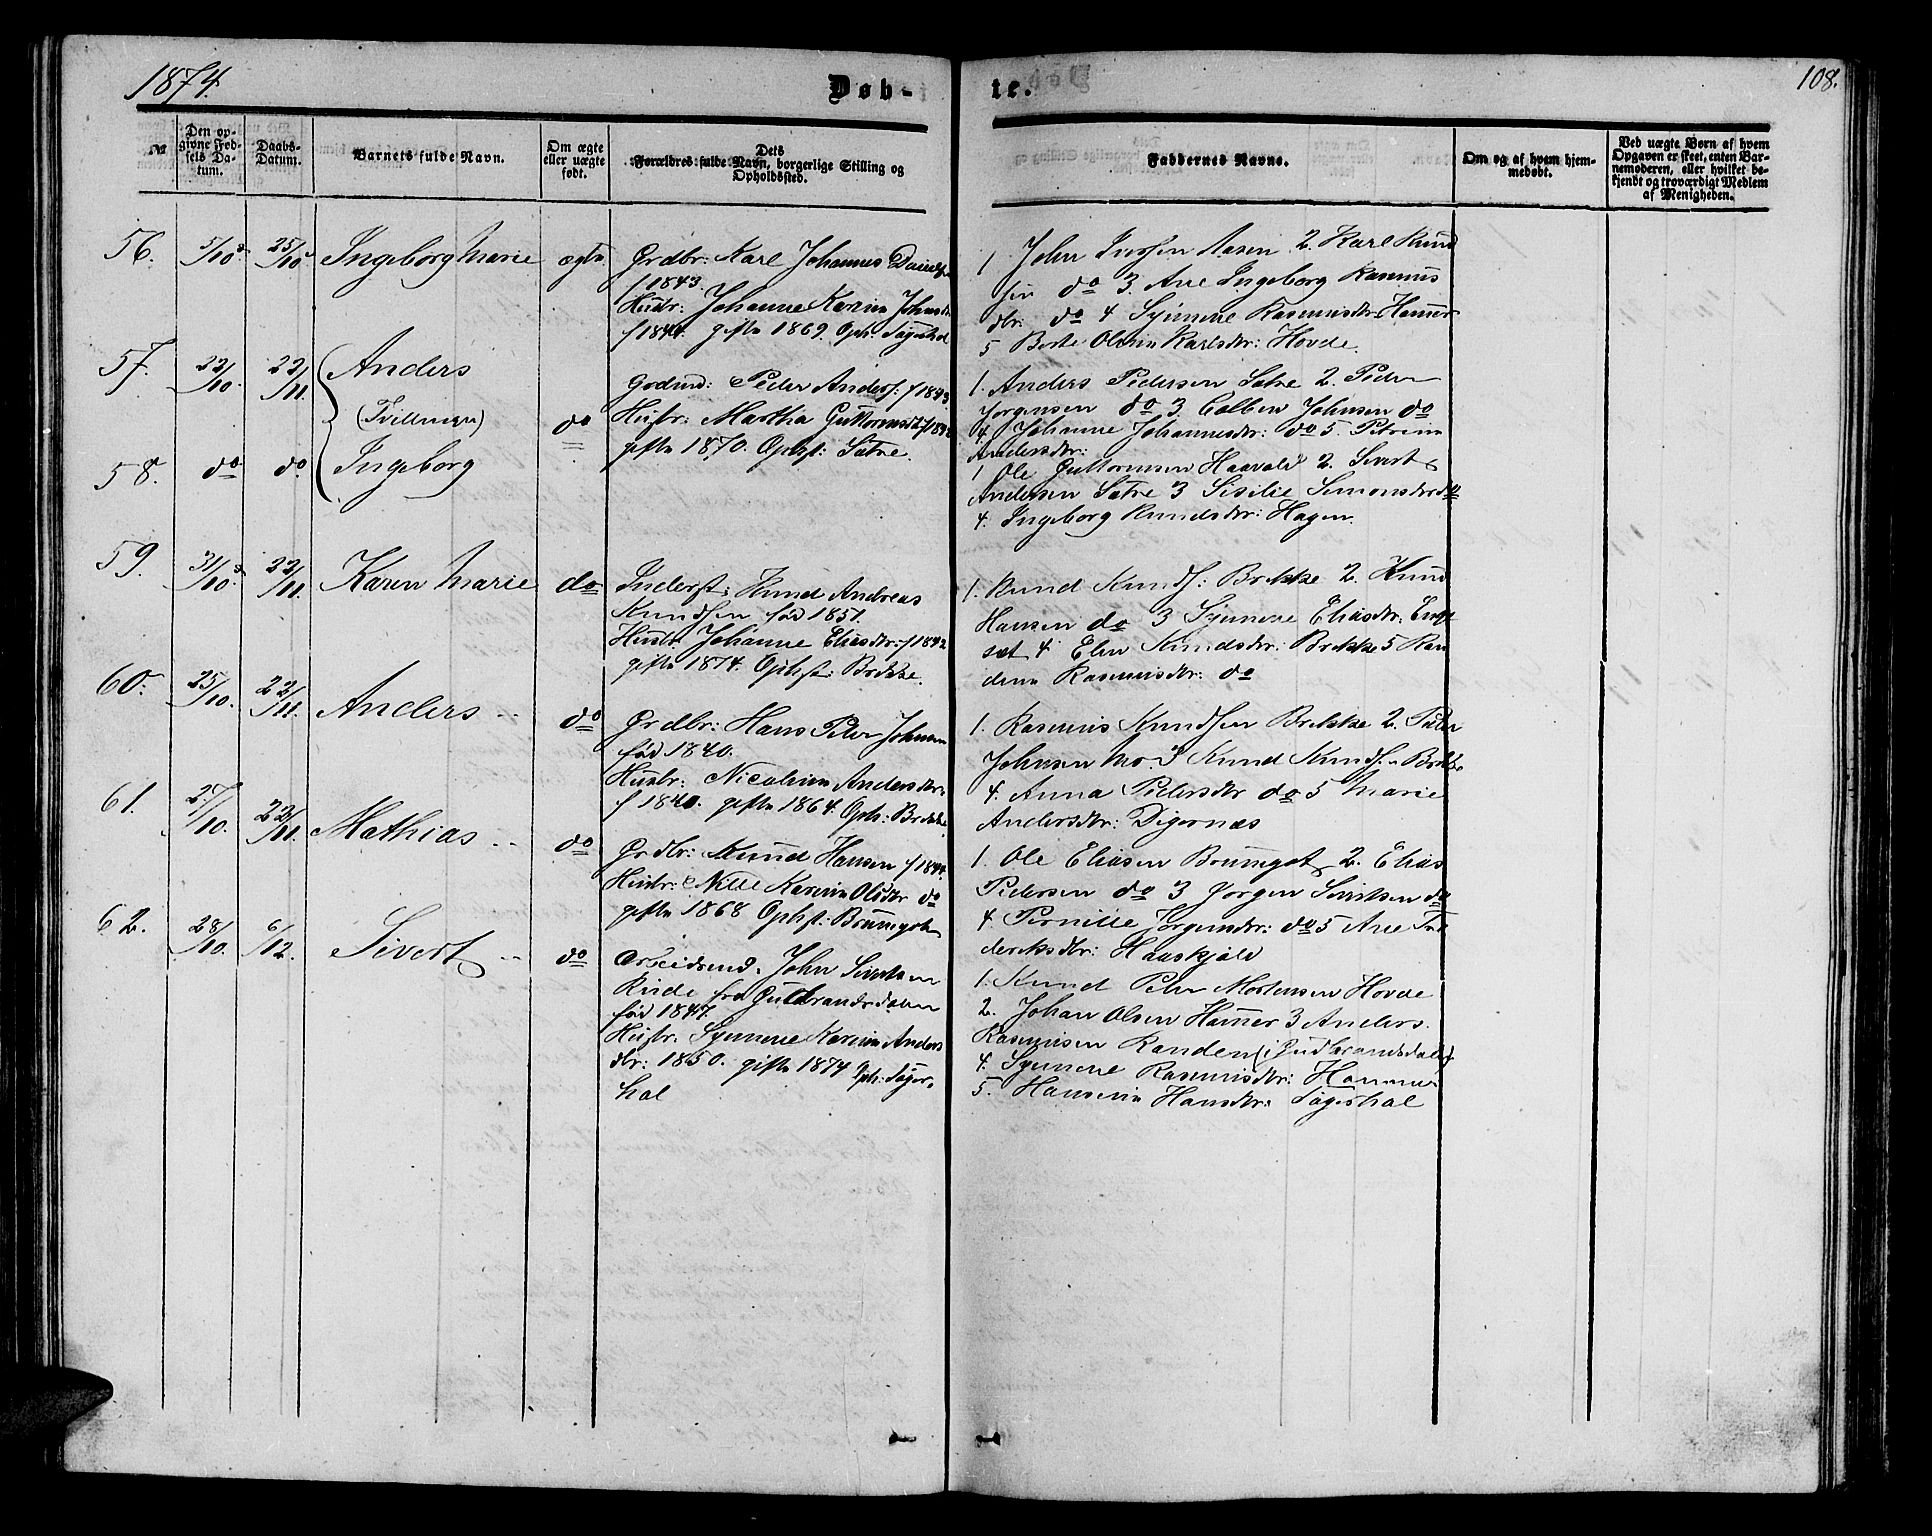 1874.
Døb-
te.
108.
№
Den op-
givne Fød-
sels Da-
tum.
Daabs-
Datum.
Barnets fulde Navn.
Om ægte
eller uægte
født.
Dets
Forældres fulde Navn, borgerlige Stilling og
Opholdssted.
Faddernes Navne.
Om og af hvem hjem-
medøbt.
Ved uægte Børn af hvem
Opgaven er skeet, enten Bar-
nemoderen, eller hvilket be-
kjendt og troværdigt Medlem
af Menigheden.
56. 5/10 25/10 Ingeborg Marie ægte
Grdbr: Karl Johannes
f 1843.
Hustr: Johanne Karine
gifte 1869 Oph:
1 John Iversen Aasen 2. Karl Knud
sen do 3. Ane Ingeborg Rasmus
dtr: do 4 Synneve Rasmusdtr: Hamer
5 Berte Oline Karlsdtr: Hovde.
57. 22/10. 22/11. Anders
(Tvillinger)
58. do do Ingeborg
do
Peder Anders: f 1843
Hustr: Martha Guttormsdt
gifte 1870. Ophst: Sætre.
1. Anders Pedersen Sætre 2. Peder
Jørgensen do 3. Colben Johnsen do
4. Johanne Johannesdtr: do 5. Petrine
Andersdtr:
1 Ole Guttormsen Haavold 2. Sivert
Andersen Sætre 3 Sisilie Simonsdtr do
4. Ingeborg Knudsdtr: Hagen.
59. 31/10. 22/11. Karen Marie do
Inderst: Knud Andreas
Knudsen fød 1851.
Hustr. Johanne Eliasdtr: f 1842
gifte 1874. Ophst: Brekke.
1. Knud Knuds: Brekke 2. Knud
Hansen do 3 Synneve Eliasdtr: Eng
set 4 Elen Knudsdtr: Brekke 5 Ran
dine Rasmusdtr: do
60. 25/10. 22/11. Anders do
Grdbr: Hans Peter Johnsen
fød 1840.
Hustr: Nicoline Andersdtr:
f 1840. gifte 1864. Oph: Brekke
1. Rasmus Knudsen Brekke 2. Peter
Johnsen Mo. 3 Knud Knuds: Brekke
4. Anna Pedersdtr do 5 Marie
Andersdtr: Digernæs
61. 27/10. 22/11. Mathias do
Grdbr: Knud Hansen f 1844.
Hustr: Nille Karine Olsdtr do
gifte 1868 Ophst: Brunngot
1. Ole Eliasen Brunngot 2. Elias
Pedersen do 3 Jørgen Sivertsen do
4. Pernille Jørgensdtr: do 5 Ane Fre
deriksdtr: Haaskjold
62. 28/10. 6/12. Sivert do
Arbeidsmd. John Sivertsen
Rude fra Gudbrandsdalen
fød 1847.
Hustr. Synneve Karine Anders
dtr: 1850. gifte 1874
1. Knud Peter Mortensen Hovde
2. Johan Olsen Hamer 3 Anders
Rasmusen Randen (i Gudbrandsdalen)
4. Synneve Rasmusdtr: Hammer
5. Hansine Hansdtr: